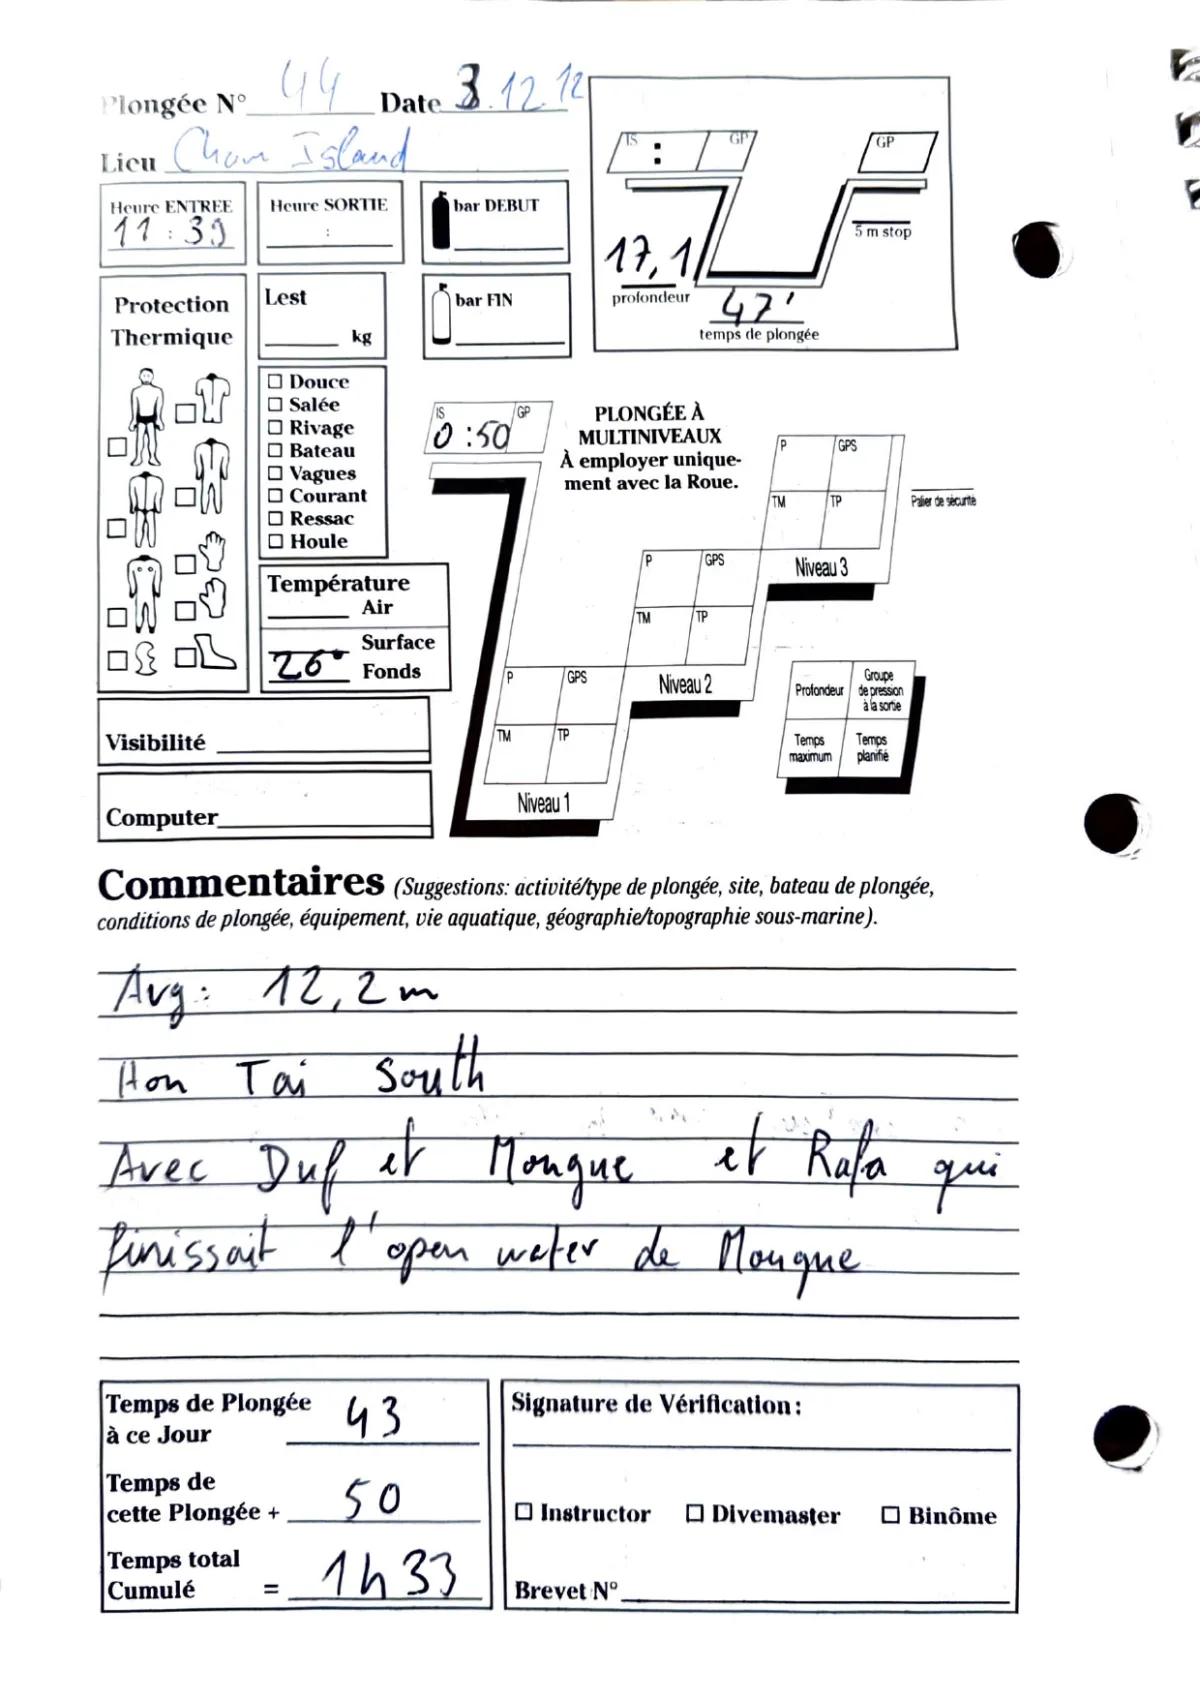 Plongée N° 44 Date 3.12.12
Lieu Cham Island
Heure ENTREE
11:39
Heure SORTIE
:
bar DEBUT
bar FIN
IS : GP
GP
17,1
profondeur
47'
temps de plongée
5 m stop
Protection
Thermique
Lest
kg
Douce
Salée
Rivage
Bateau
Vagues
Courant
Ressac
Houle
Température
Air
Surface
26° Fonds
Visibilité
Computer
IS GP
0:50
PLONGÉE À
MULTINIVEAUX
À employer unique-
ment avec la Roue.
P GPS
TM TP
Niveau 3
Palier de sécurité
P GPS
TM TP
Niveau 2
P GPS
TM TP
Niveau 1
Profondeur
Groupe
de pression
à la sortie
Temps
maximum
Temps
planifié
Commentaires (Suggestions: activité/type de plongée, site, bateau de plongée,
conditions de plongée, équipement, vie aquatique, géographie/topographie sous-marine).
Avg: 12,2m
Hon Tai South
Avec Duf et Mongue et Rafa qui
finissait l'open water de Mongue
Temps de Plongée
à ce Jour 43
Temps de
cette Plongée + 50
Temps total
Cumulé = 1h33
Signature de Vérification:
Instructor Divemaster Binôme
Brevet N°